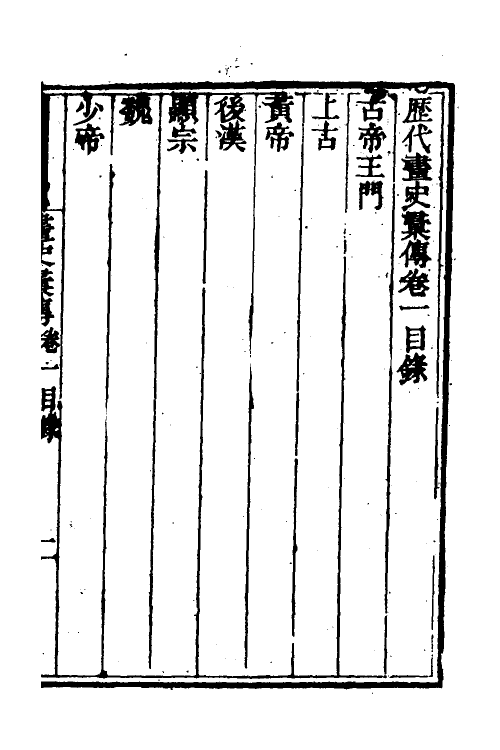 歷代畫史彙傳卷一目錄
古帝王門
上古
黃帝
後漢
顯宗
魏
少帝
畫史彙傳卷一目錄 二